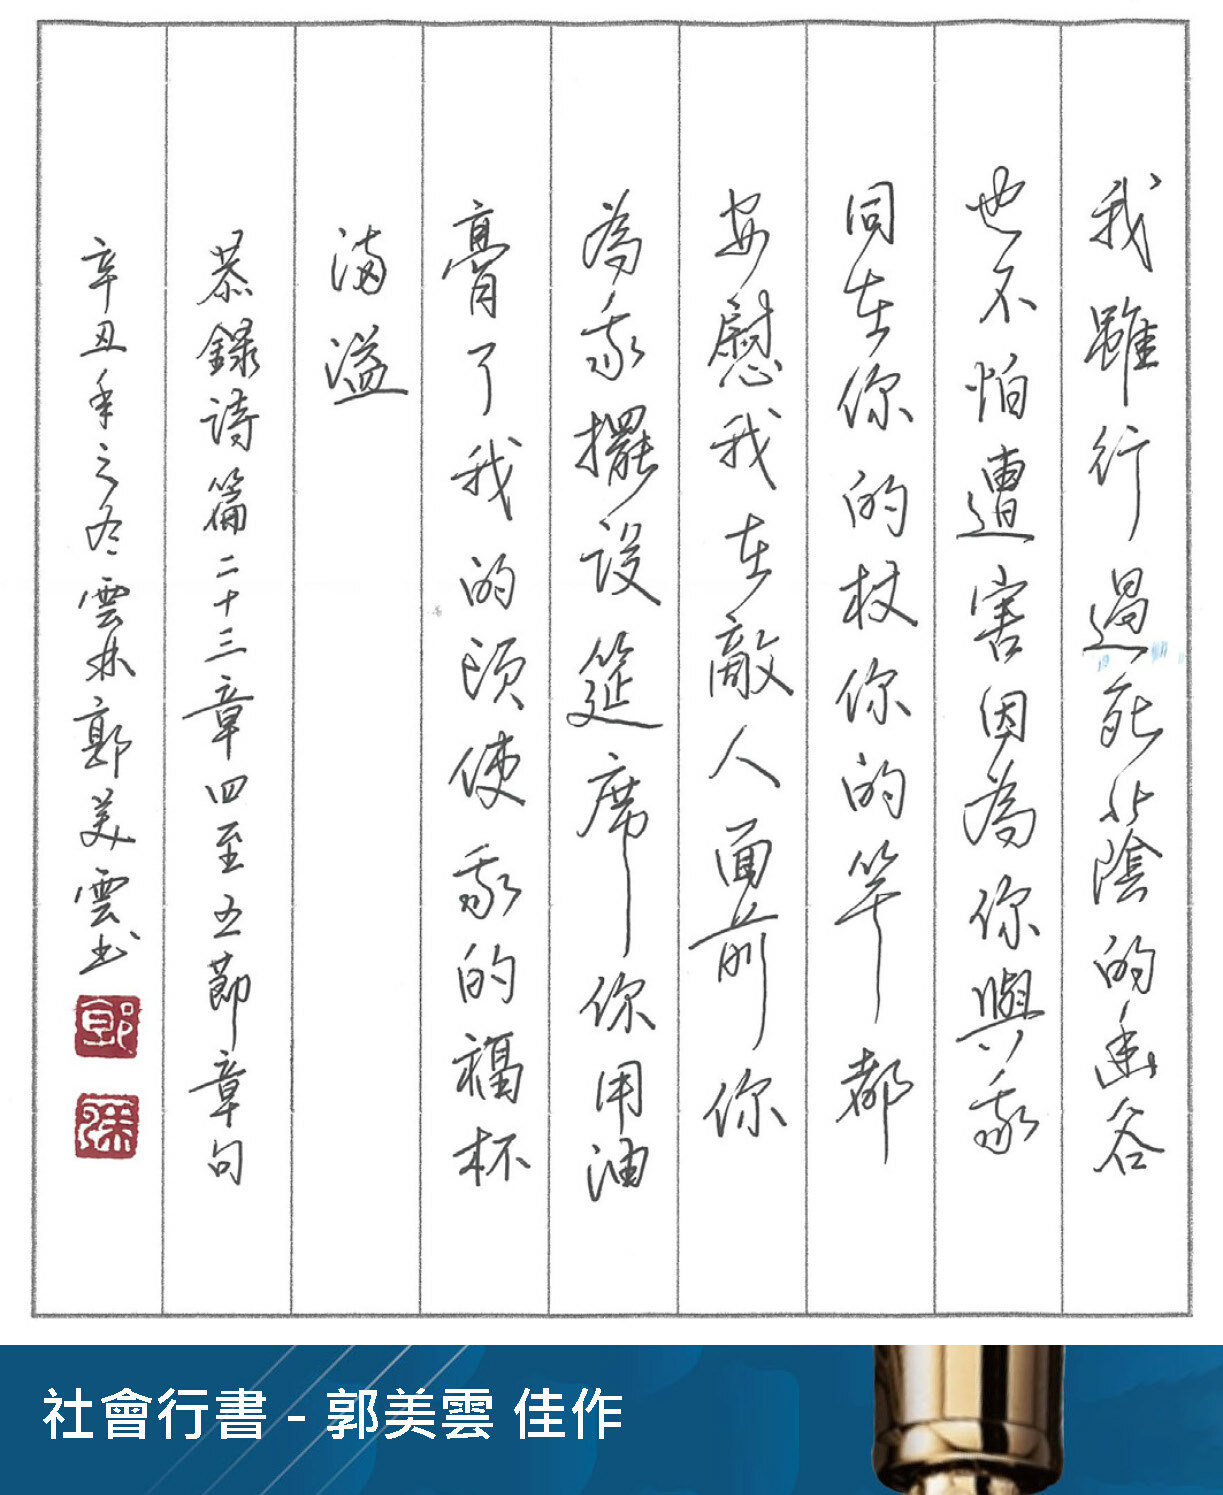 我雖行過死蔭的幽谷
也不怕遭害因為你與我
同在你的杖你的竿都
安慰我在敵人面前你
為我擺設筵席你用油
膏了我的頭使我的福杯
滿溢
恭錄詩篇二十三章四至五節章句
辛丑年之冬雲林郭美雲书
郭
社會行書 - 郭美雲 佳作